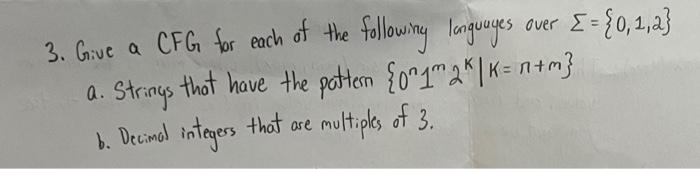 3. Give a CFG for each of the following languages over Σ = {0,1,2}
a. Strings that have the pattern {0ⁿ1ᵐ2ᴷ | K = n+m}
b. Decimal integers that are multiples of 3.